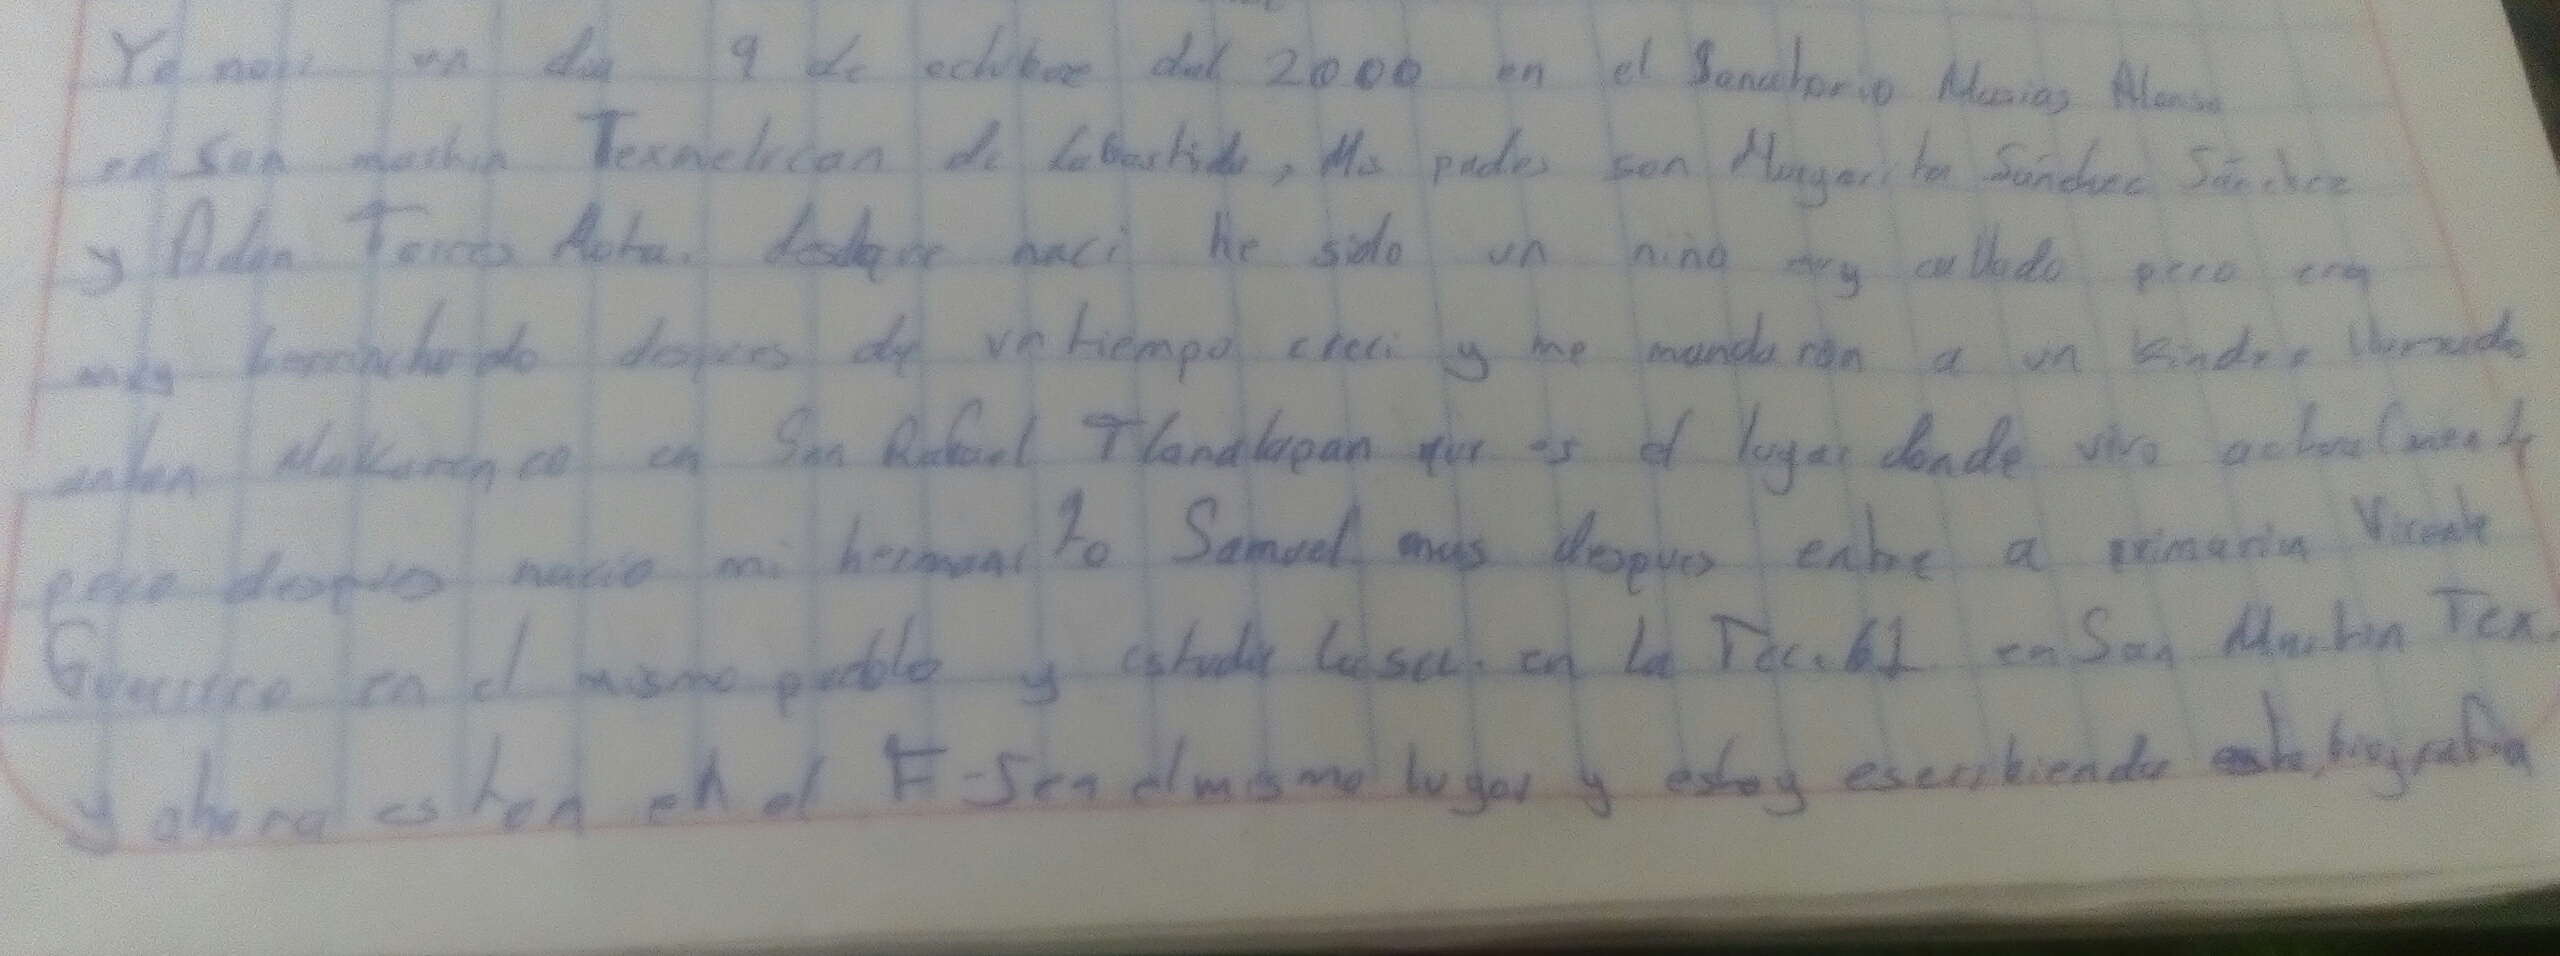 Yo naci un dia 9 de octubre del 2000 en el Sanatorio Alonso
en San martin Texmelucan de Labastida, Mis padres son Margarita Sánchez Sánchez
y Adan Torres Mota. desde que naci he sido un niño muy callado pero era
muy berrinchudo despues de un tiempo creci y me mandaron a un Kinder llamado
anton Makarenco en San Rafael Tlanalapan que es el lugar donde vivo actualmente
pero despues nacio mi hermanito Samuel mas despues entre a primaria Vicente
Guerrero en el mismo pueblo y estudie la sec. en la Tec. 61 en San Martin Tex.
y ahora eston en el en el mismo lugar y estoy escribiendo biografia